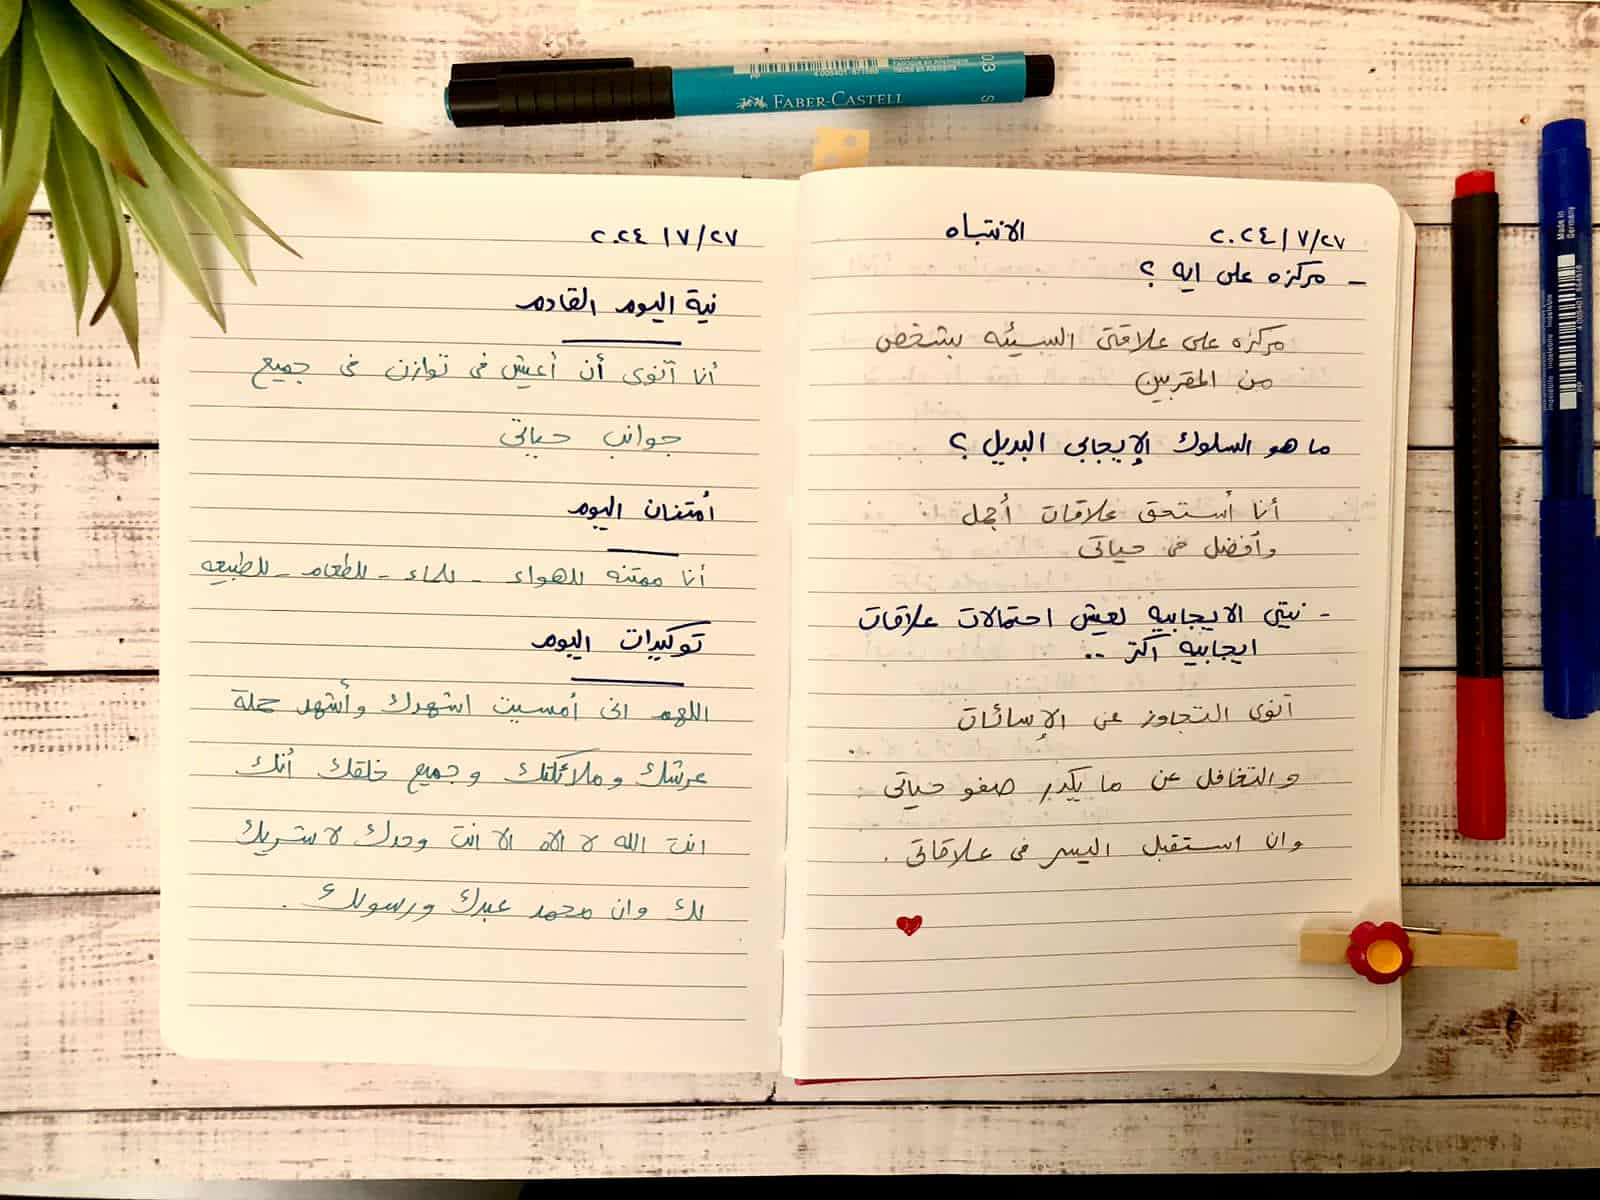 FABER-CASTELL
0,3 S
Made in Germany
٢٠٢٤/٧/٢٧ الانتباه
- مركزه على ايه ؟
مركزه على علاقتى السيئه بشخص
من المقربين
ما هو السلوك الإيجابى البديل ؟
أنا أستحق علاقات أجمل
وأفضل فى حياتى
- نيتى الايجابيه لعيش احتمالات علاقات
ايجابيه اكتر ..
أنوى التجاوز عن الإسائات
والتغافل عن ما يكدر صفو حياتى
وان استقبل اليسر فى علاقاتى .
٢٠٢٤/٧/٢٧
نية اليوم القادم
أنا أنوى أن أعيش فى توازن فى جميع
جوانب حياتى
أمتنان اليوم
أنا ممتنه للهواء - للماء - للطعام - للطبيعه
توكيدات اليوم
اللهم انى أمسيت اشهدك وأشهد حملة
عرشك وملائكتك وجميع خلقك أنك
انت الله لا اله الا انت وحدك لا شريك
لك وان محمد عبدك ورسولك .